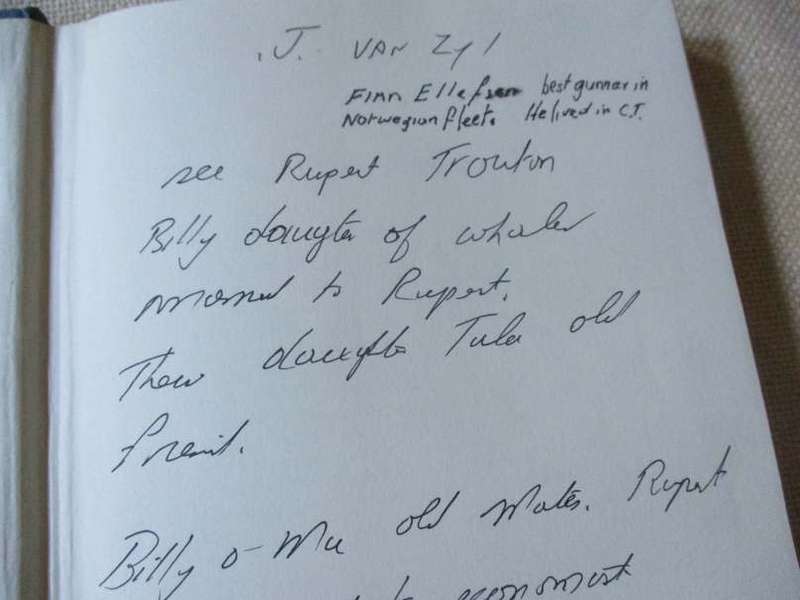 J. VAN Zyl
Finn Ellefsen best gunner in
Norwegian fleet. He lived in C.T.
see Rupert Trouton
Billy daugter of whaler
married to Rupert.
Their daughter Tula old
friend.
Billy & Me old mates. Rupert
economist